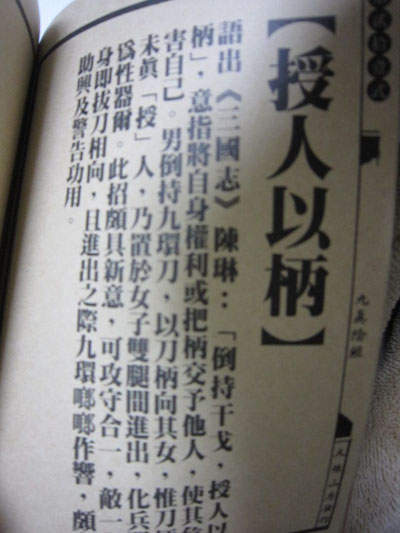 【授人以柄】
語出《三國志》陳琳：「倒持干戈，授人以
柄」，意指將自身權利或把柄交予他人，使其
害自己。男倒持九環刀，以刀柄向其女，惟刀
未眞「授」人，乃置於女子雙腿間進出，化兵
爲性器爾。此招頗具新意，可攻守合一，敵一
身即拔刀相向，且進出之際九環啷啷作響，頗
助興及警告功用。
九眞陰經